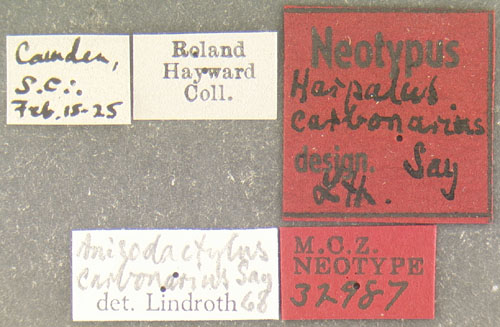 Camden,
S.C.
Feb. 15-25
Roland
Hayward
Coll.
Neotypus
Harpalus
carbonarius
design. Say
Lth.
Anisodactylus
carbonarius Say
det. Lindroth 68
M.C.Z.
NEOTYPE
32987